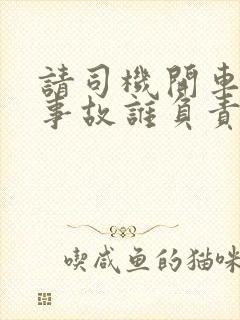 請司機開車
事故誰負責
喫咸鱼的猫咪